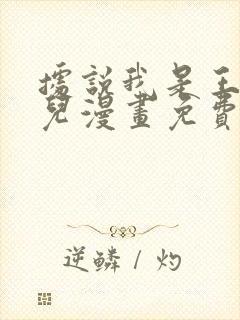 據說我是王
兒漫畫免費
逆鱗 / 灼